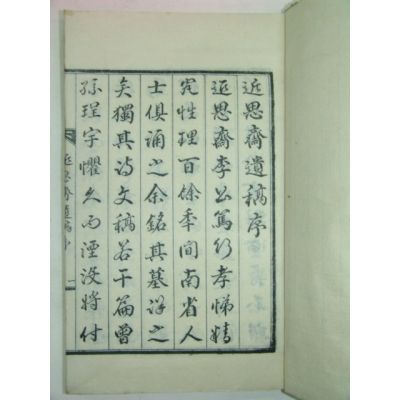 近思齋遺稿序
近思齋李公篤行孝悌精
究性理百餘年間南省人
士俱誦之余銘其墓詳之
矣獨其詩文稿若干篇曾
孫珵宇懼久而湮沒將付
近思齋遺稿序 一